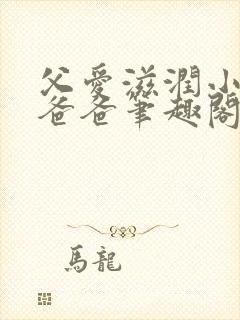 父愛滋潤小
爸爸筆趣閣
馬龍